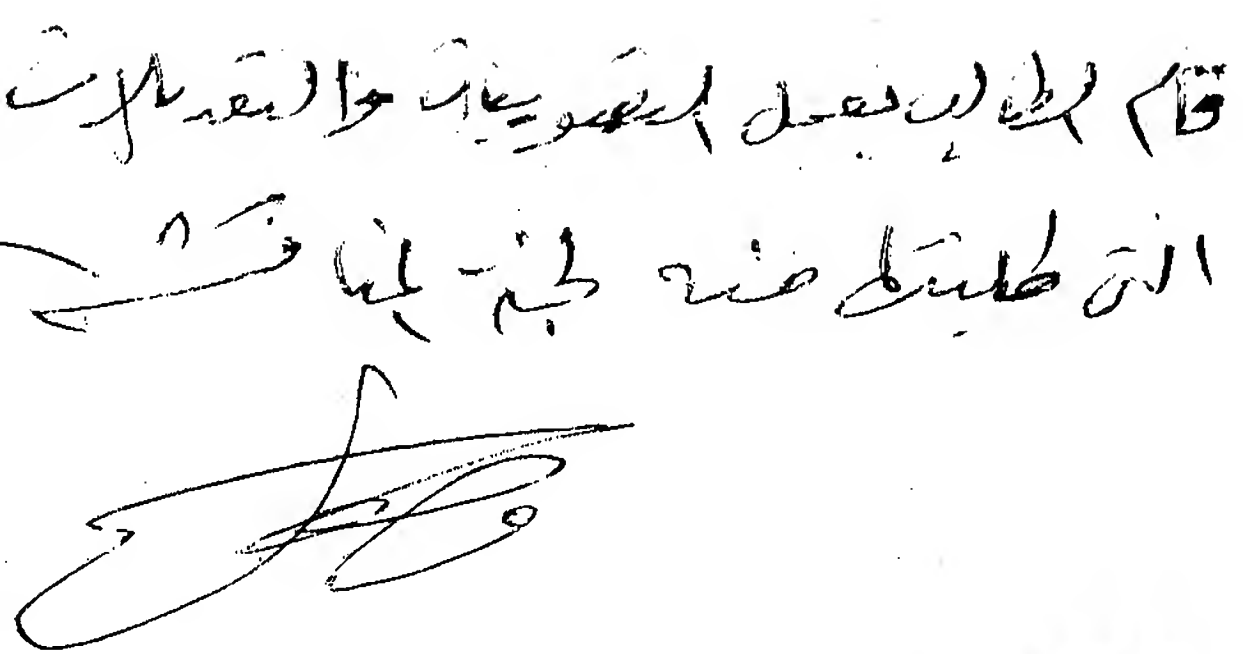 قام الطالب بعمل التصويبات والتعديلات
التي طلبتها منه لجنة المناقشة